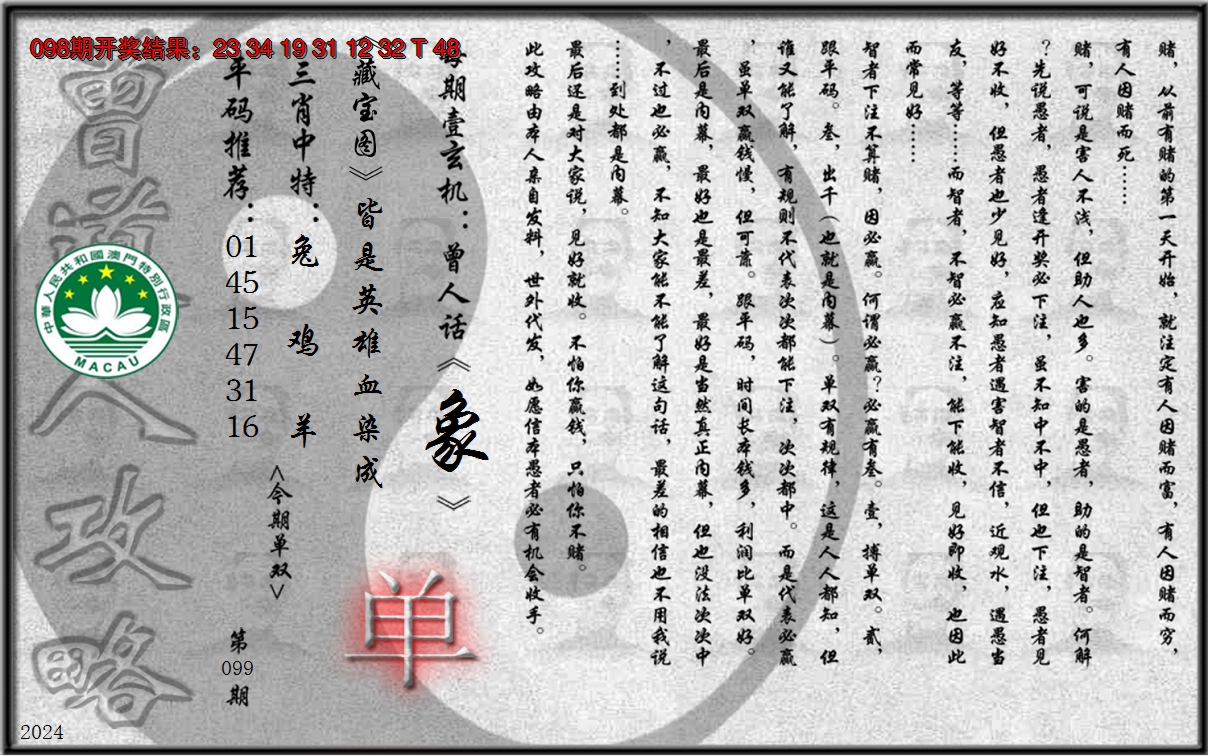 098期开奖结果：23 34 19 31 12 32 T 48
赌，从前有赌的第一天开始，就注定有人因赌而富，有人因赌而穷，
有人因赌而死……
赌，可说是害人不浅，但助人也多。害的是愚者，助的是智者。何解
？先说愚者，愚者逢开奖必下注，虽不知中不中，但也下注，愚者见
好不收，但愚者也少见好，应知愚者遇害智者不信，近观水，遇愚当
友，等等……而智者，不智必赢不注，能下能收，见好即收，也因此
而常见好……
智者下注不算赌，因必赢。何谓必赢？必赢有叁。壹，搏单双。贰，
跟平码。叁，出千（也就是内幕）。单双有规律，这是人人都知，但
谁又能了解，有规则不代表次次都能下注，次次都中。而是代表必赢
，虽单双赢钱慢，但可靠。跟平码，时间长本钱多，利润比单双好。
最后是内幕，最好也是最差，最好是当然真正内幕，但也没法次次中
，不过也必赢，不知大家能不能了解这句话，最差的相信也不用我说
……到处都是内幕。
最后还是对大家说，见好就收。不怕你赢钱，只怕你不赌。
此攻略由本人亲自发料，世外代发，如愿信本愚者必有机会收手。
每期壹玄机：曾人话《象》
《藏宝图》皆是英雄血染成
三肖中特：兔 鸡 羊
平码推荐：01 45 15 47 31 16
<今期单双>
单
第
099
期
曾道人攻略
中華人民共和國澳門特別行政區
MACAU
2024